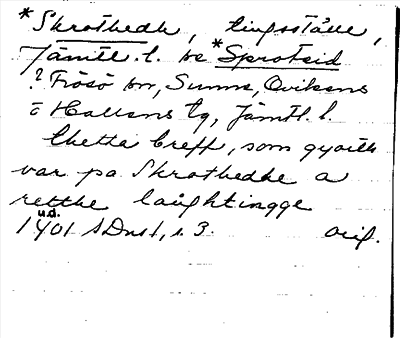 *Skrothedh, tingsställe,
Jämtl. l. se *Sprotseid
? Frösö sn, Sunne, Ovikens
o Hallens tg, Jämtl. l.
thetta breff, som gyordh
var pa Skrothedhe a
retthe laughtingge
u.d.
1401 SDns 1, s. 3. orig.